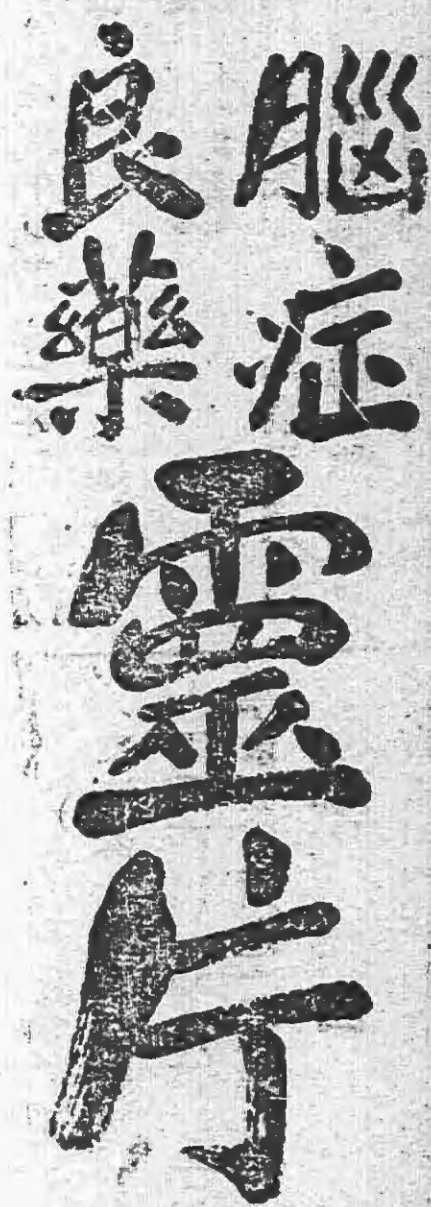 腦症
良藥
靈片